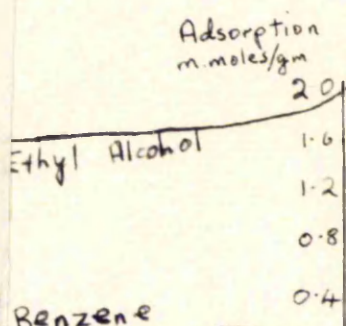 Adsorption
m.moles/gm
2 0
Ethyl Alcohol
1·6
1·2
0·8
0·4
Benzene